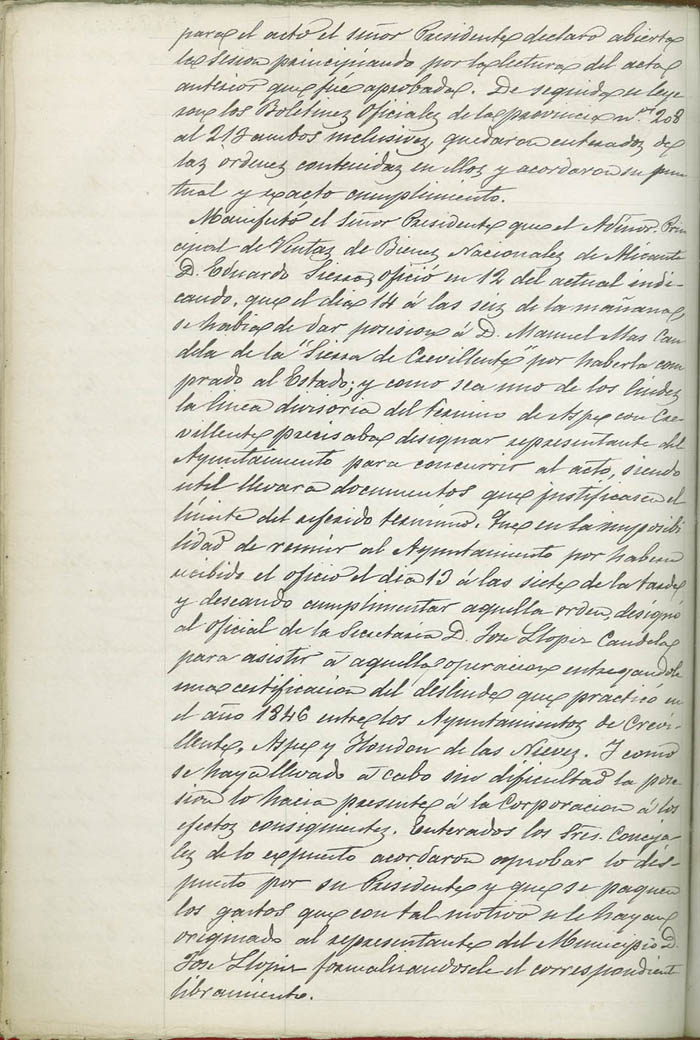 para el acto el señor Presidente declaró abierta
la sesion principiando por la lectura del acta
anterior que fué aprobada. De seguida se leye
ron los Boletines Oficiales de la provincia nos. 208
al 213 ambos inclusives, quedaron enterados de
las ordenes contenidas en ellos y acordaron su pun
tual y exacto cumplimiento.
Manifestó el señor Presidente que el Admor. Prin
cipal de Ventas de Bienes Nacionales de Alicante
D. Eduardo Sierra, ofició en 12 del actual indi
cando, que el dia 14 á las seis de la mañana,
se habia de dar posesion á D. Manuel Mas Can
dela de la "Sierra de Crevillente" por haberla com
prado al Estado; y como sea uno de los lindes
la linea divisoria del termino de Aspe con Cre-
villente precisaba designar representante del
Ayuntamiento para concurrir al acto, siendo
util llevara documentos que justificasen el
limite del referido termino. Que en la imposibi
lidad de reunir al Ayuntamiento por haberse
recibido el oficio el dia 13 á las siete de la tarde
y deseando cumplimentar aquella orden, designó
al Oficial de la Secretaria D. Jose Llopis Candela
para asistir á aquella operacion entregandole
una certificacion del deslinde que practicó en
el año 1846 entre los Ayuntamientos de Crevi-
llente, Aspe y Hondon de las Nieves. Y como
se haya llevado á cabo sin dificultad la pose-
sion lo hacia presente á la Corporacion á los
efectos consiguientes. Enterados los Sres. Conceja-
les de lo expuesto acordaron aprobar lo dis-
puesto por su Presidente y que se paguen
los gastos que con tal motivo se le hayan
originado al representante del Municipio D.
Jose Llopis formalizandosele el correspondiente
libramiento.